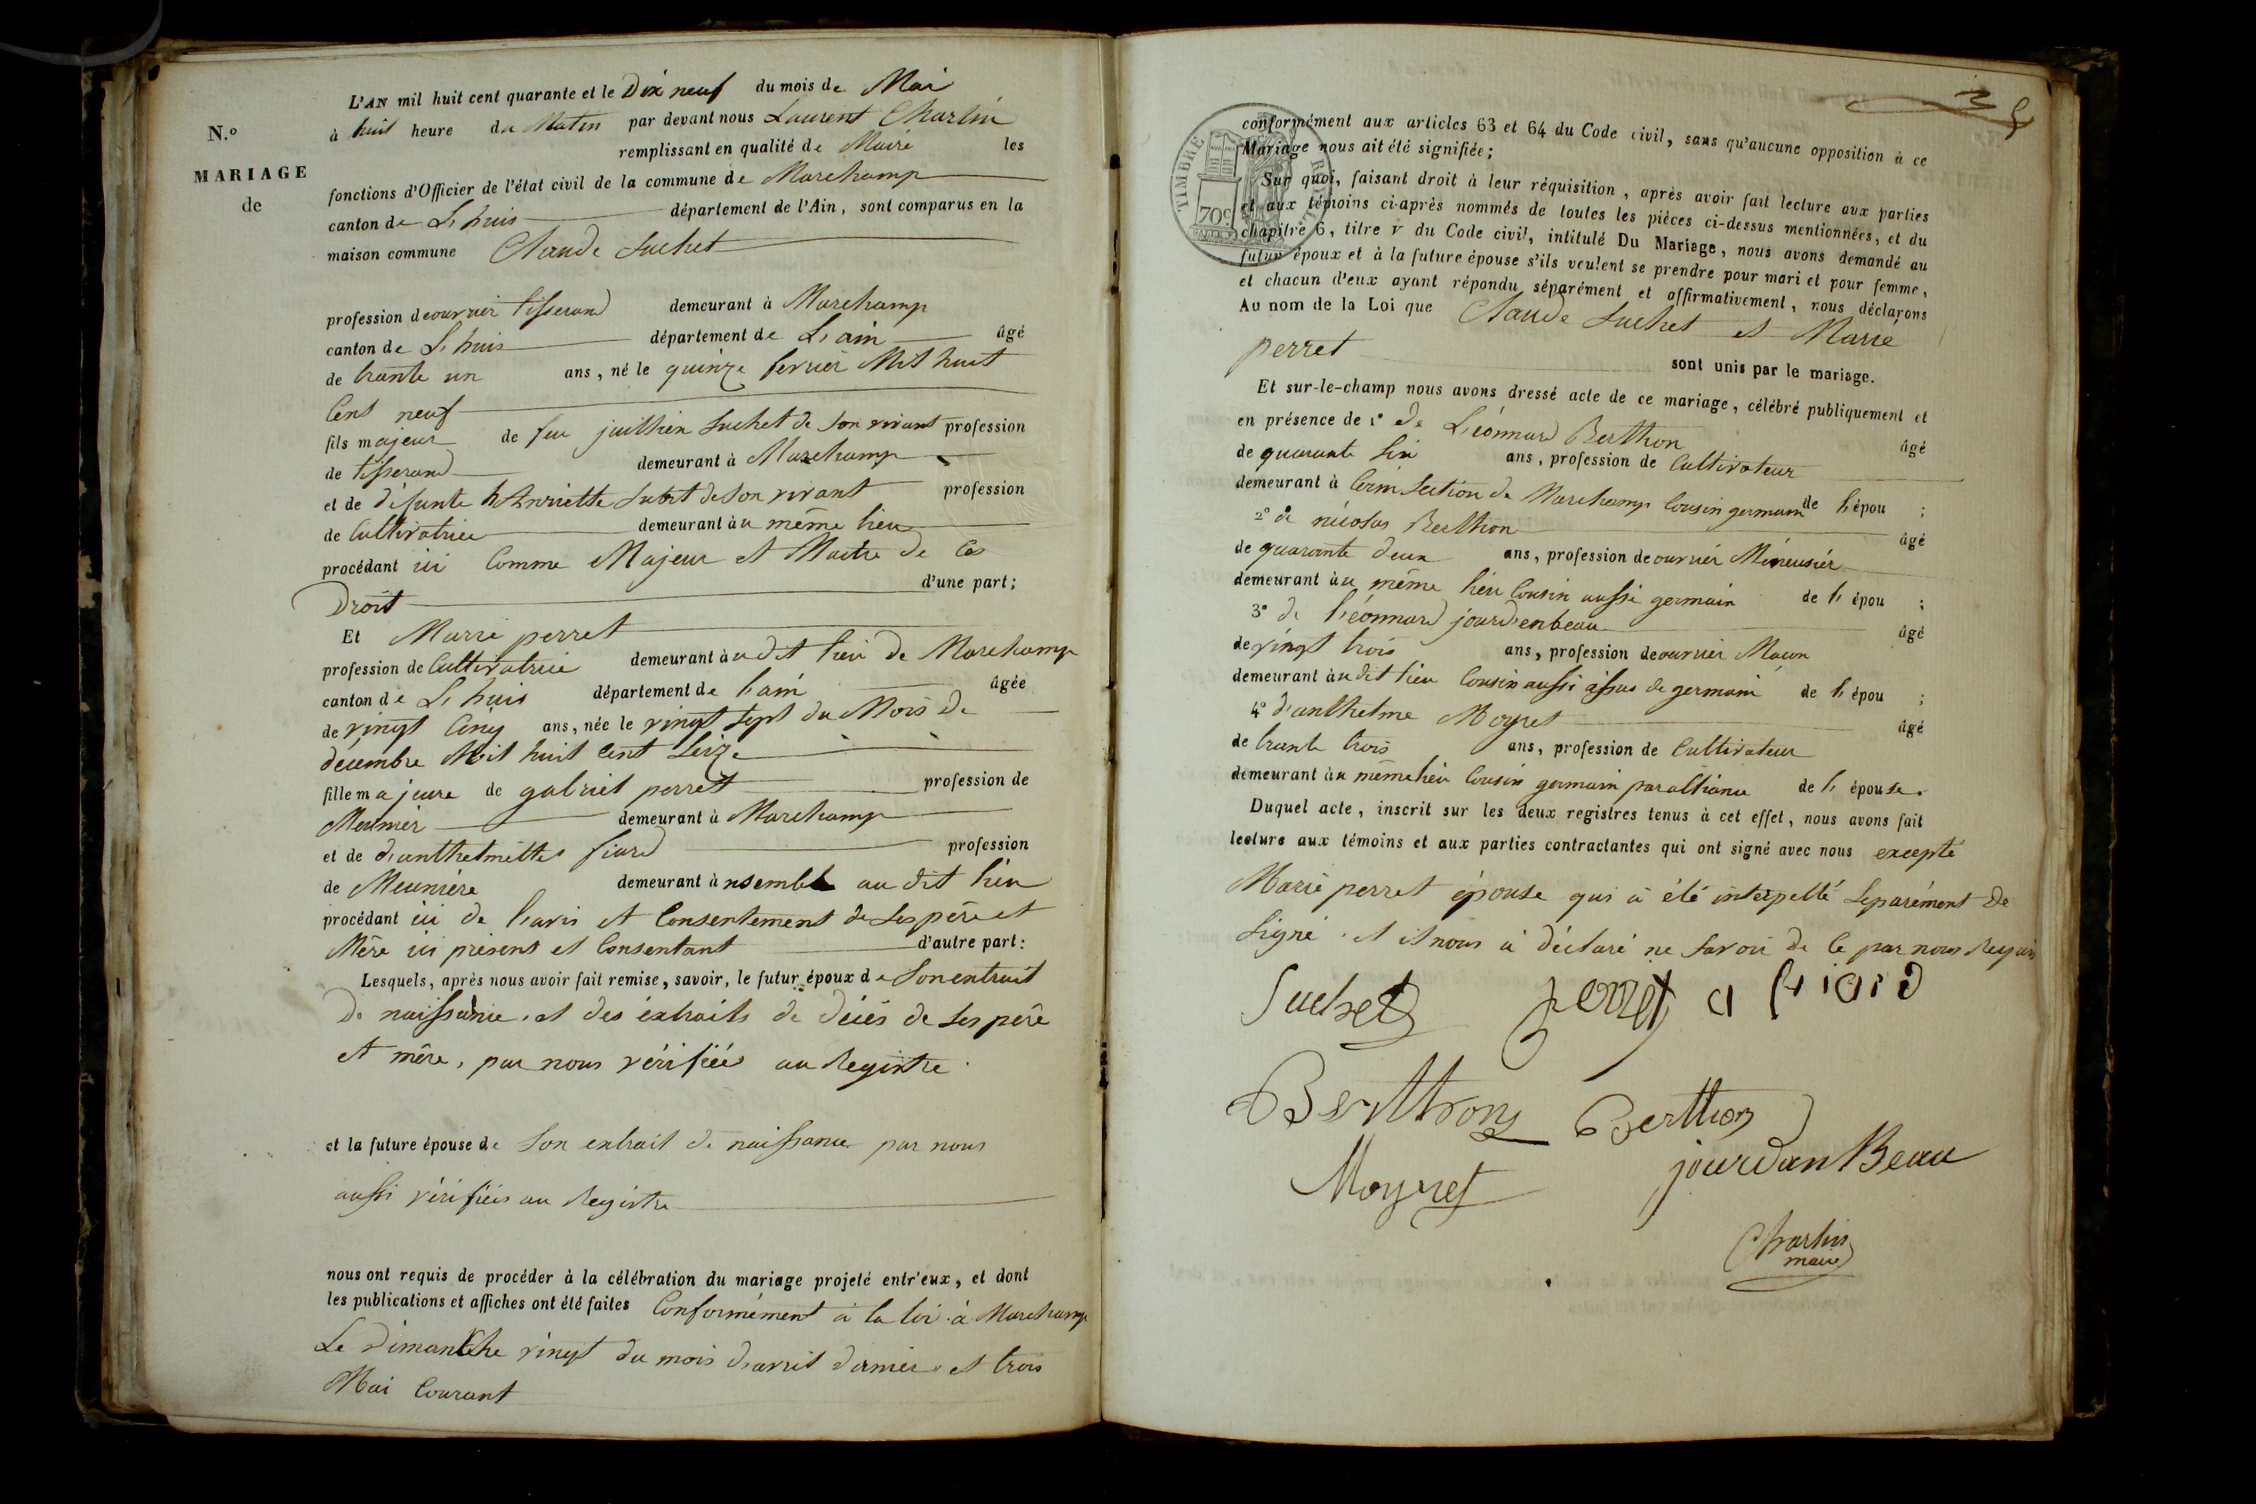 N.º
MARIAGE
de
L'AN mil huit cent quarante et le Dix neuf du mois de Mai
à huit heure du Matin par devant nous Laurent Charlin
remplissant en qualité de Maire les
fonctions d'Officier de l'état civil de la commune de Marchamp
canton de L'huis département de l'Ain, sont comparus en la
maison commune Claude Suchet
profession de ouvrier tisserand demeurant à Marchamp
canton de L'huis département de L'ain âgé
de trante un ans, né le quinze fevrier Mil huit
Cent neuf
fils majeur de feu juillien Suchet de Son vivant profession
de tisserand demeurant à Marchamp
et de défunte hAnriette Subit de Son vivant profession
de Cultivatrice demeurant à u même lieu
procédant ici Comme Majeur et Maitre de Ces
d'une part;
Droit
Et Marie perret
profession de Cultivatrice demeurant à u dit lieu de Marchamp
canton de L'huis département de l'ain âgée
de vingt Cinq ans, née le vingt Sept du Mois de
décembre Mil huit Cent Seize
fille majeure de gabriel perret profession de
Meunier demeurant à Marchamp
et de d'anthelmette fiard profession
de Meunière demeurant à nsemble au dit lieu
procédant ici de l'avis et Consentement de Ses père et
Mère ici présent et Consentant d'autre part:
Lesquels, après nous avoir fait remise, savoir, le futur époux de Son extrait
De naissance, et des éxtraits de décés de Ses père
et mère, par nous vérifiée au Registre.
et la future épouse de Son extrait de naissance par nous
aussi vérifiés au Registre
nous ont requis de procéder à la célébration du mariage projeté entr'eux, et dont
les publications et affiches ont été faites Conformément à la loi à Marchamp
Le dimanche vingt du mois d'avril dernier et trois
Mai Courant
TIMBRE ROYAL
70c
conformément aux articles 63 et 64 du Code civil, sans qu'aucune opposition à ce
Mariage nous ait été signifiée;
Sur quoi, faisant droit à leur réquisition, après avoir fait lecture aux parties
et aux témoins ci-après nommés de toutes les pièces ci-dessus mentionnées, et du
chapitre 6, titre v du Code civil, intitulé Du Mariage, nous avons demandé au
futur époux et à la future épouse s'ils veulent se prendre pour mari et pour femme,
et chacun d'eux ayant répondu séparément et affirmativement, nous déclarons
Au nom de la Loi que Claude Suchet et Marie
perret sont unis par le mariage.
Et sur-le-champ nous avons dressé acte de ce mariage, célébré publiquement et
en présence de 1º de Léonnard Berthon âgé
de quarante Six ans, profession de Cultivateur
demeurant à Cerin Section de Marchamp Cousin germain de l'épou ;
2º de nicolas Berthon âgé
de quarante deux ans, profession de ouvrier Méneusier
demeurant à u même lieu Cousin aussi germain de l'épou ;
3º de léonnard jourdenbeau âgé
de vingt trois ans, profession de ouvrier Maçon
demeurant à u dit lieu Cousin aussi issus de germain de l'épou ;
4º d'anthelme Moyret âgé
de trante trois ans, profession de Cultivateur
demeurant à u même lieu Cousin germain par alliance de l'épouse.
Duquel acte, inscrit sur les deux registres tenus à cet effet, nous avons fait
lecture aux témoins et aux parties contractantes qui ont signé avec nous excepté
Marie perret épouse qui à été interpellé Separément de
Signé et il nous à déclaré ne Savoir de Ce par nous Requis
Suchet perret a fiard
Berthon Berthon
Moyret jourdan Beau
Charlin
maire